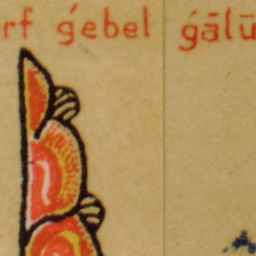 rf ǵebel ǵālū